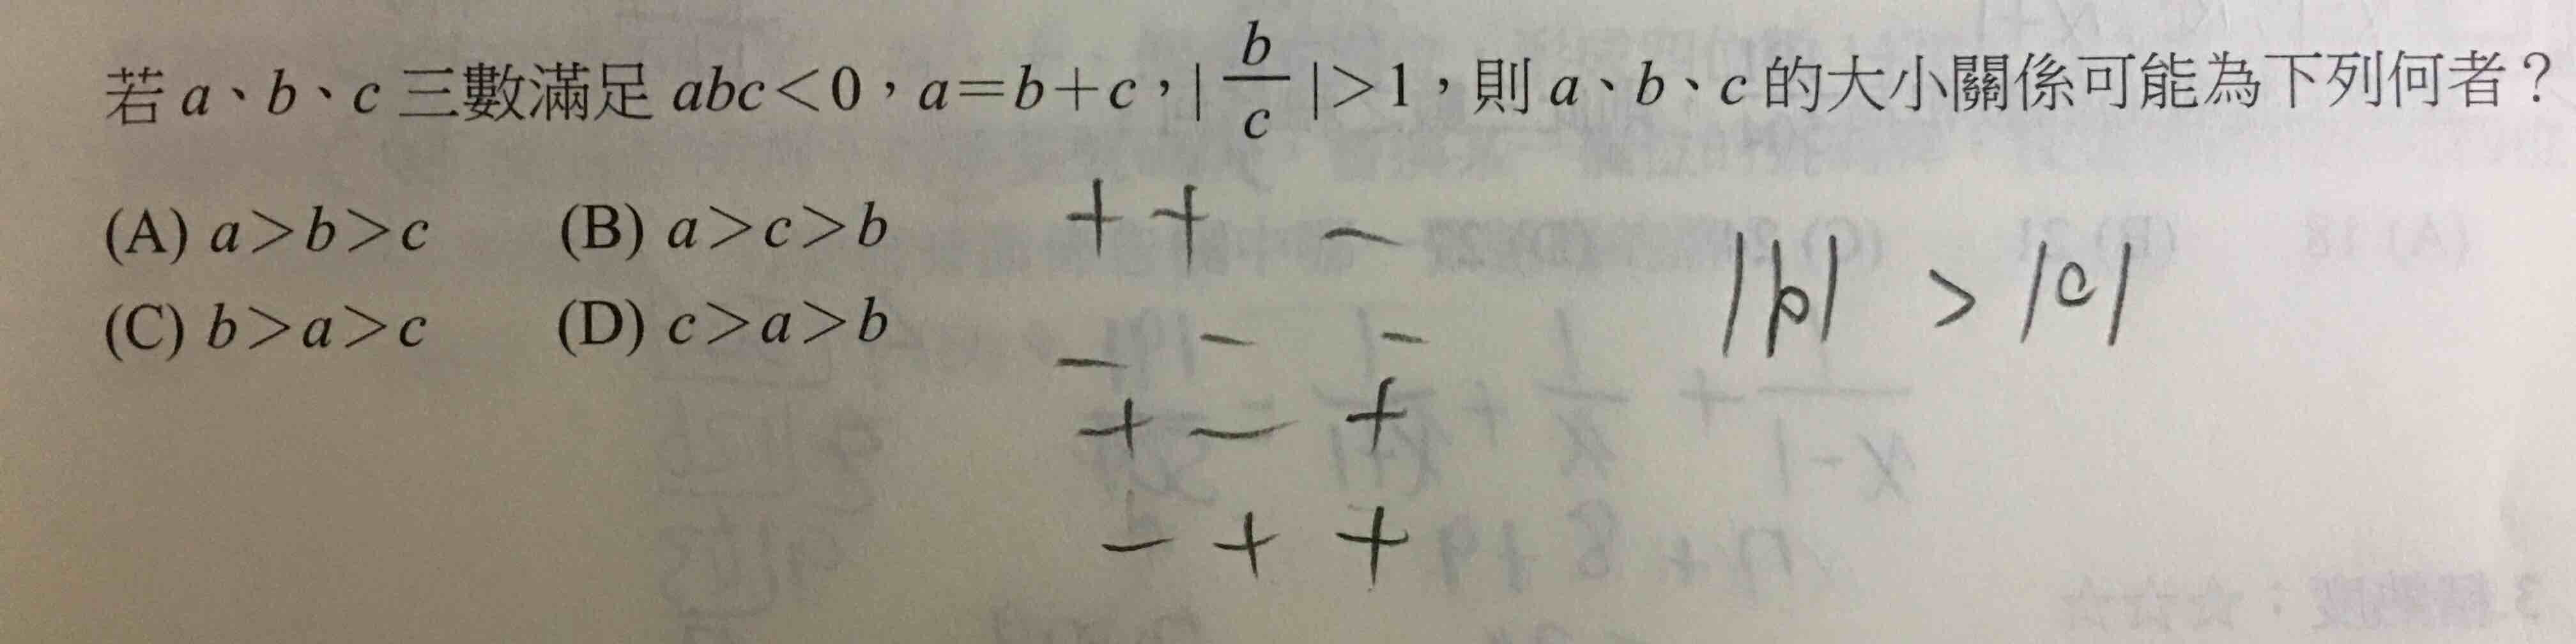 若 a、b、c 三數滿足 abc<0，a=b+c，|b/c|>1，則 a、b、c 的大小關係可能為下列何者？
(A) a>b>c (B) a>c>b
(C) b>a>c (D) c>a>b
+ + −
− − −
+ − +
− + +
|b| > |c|